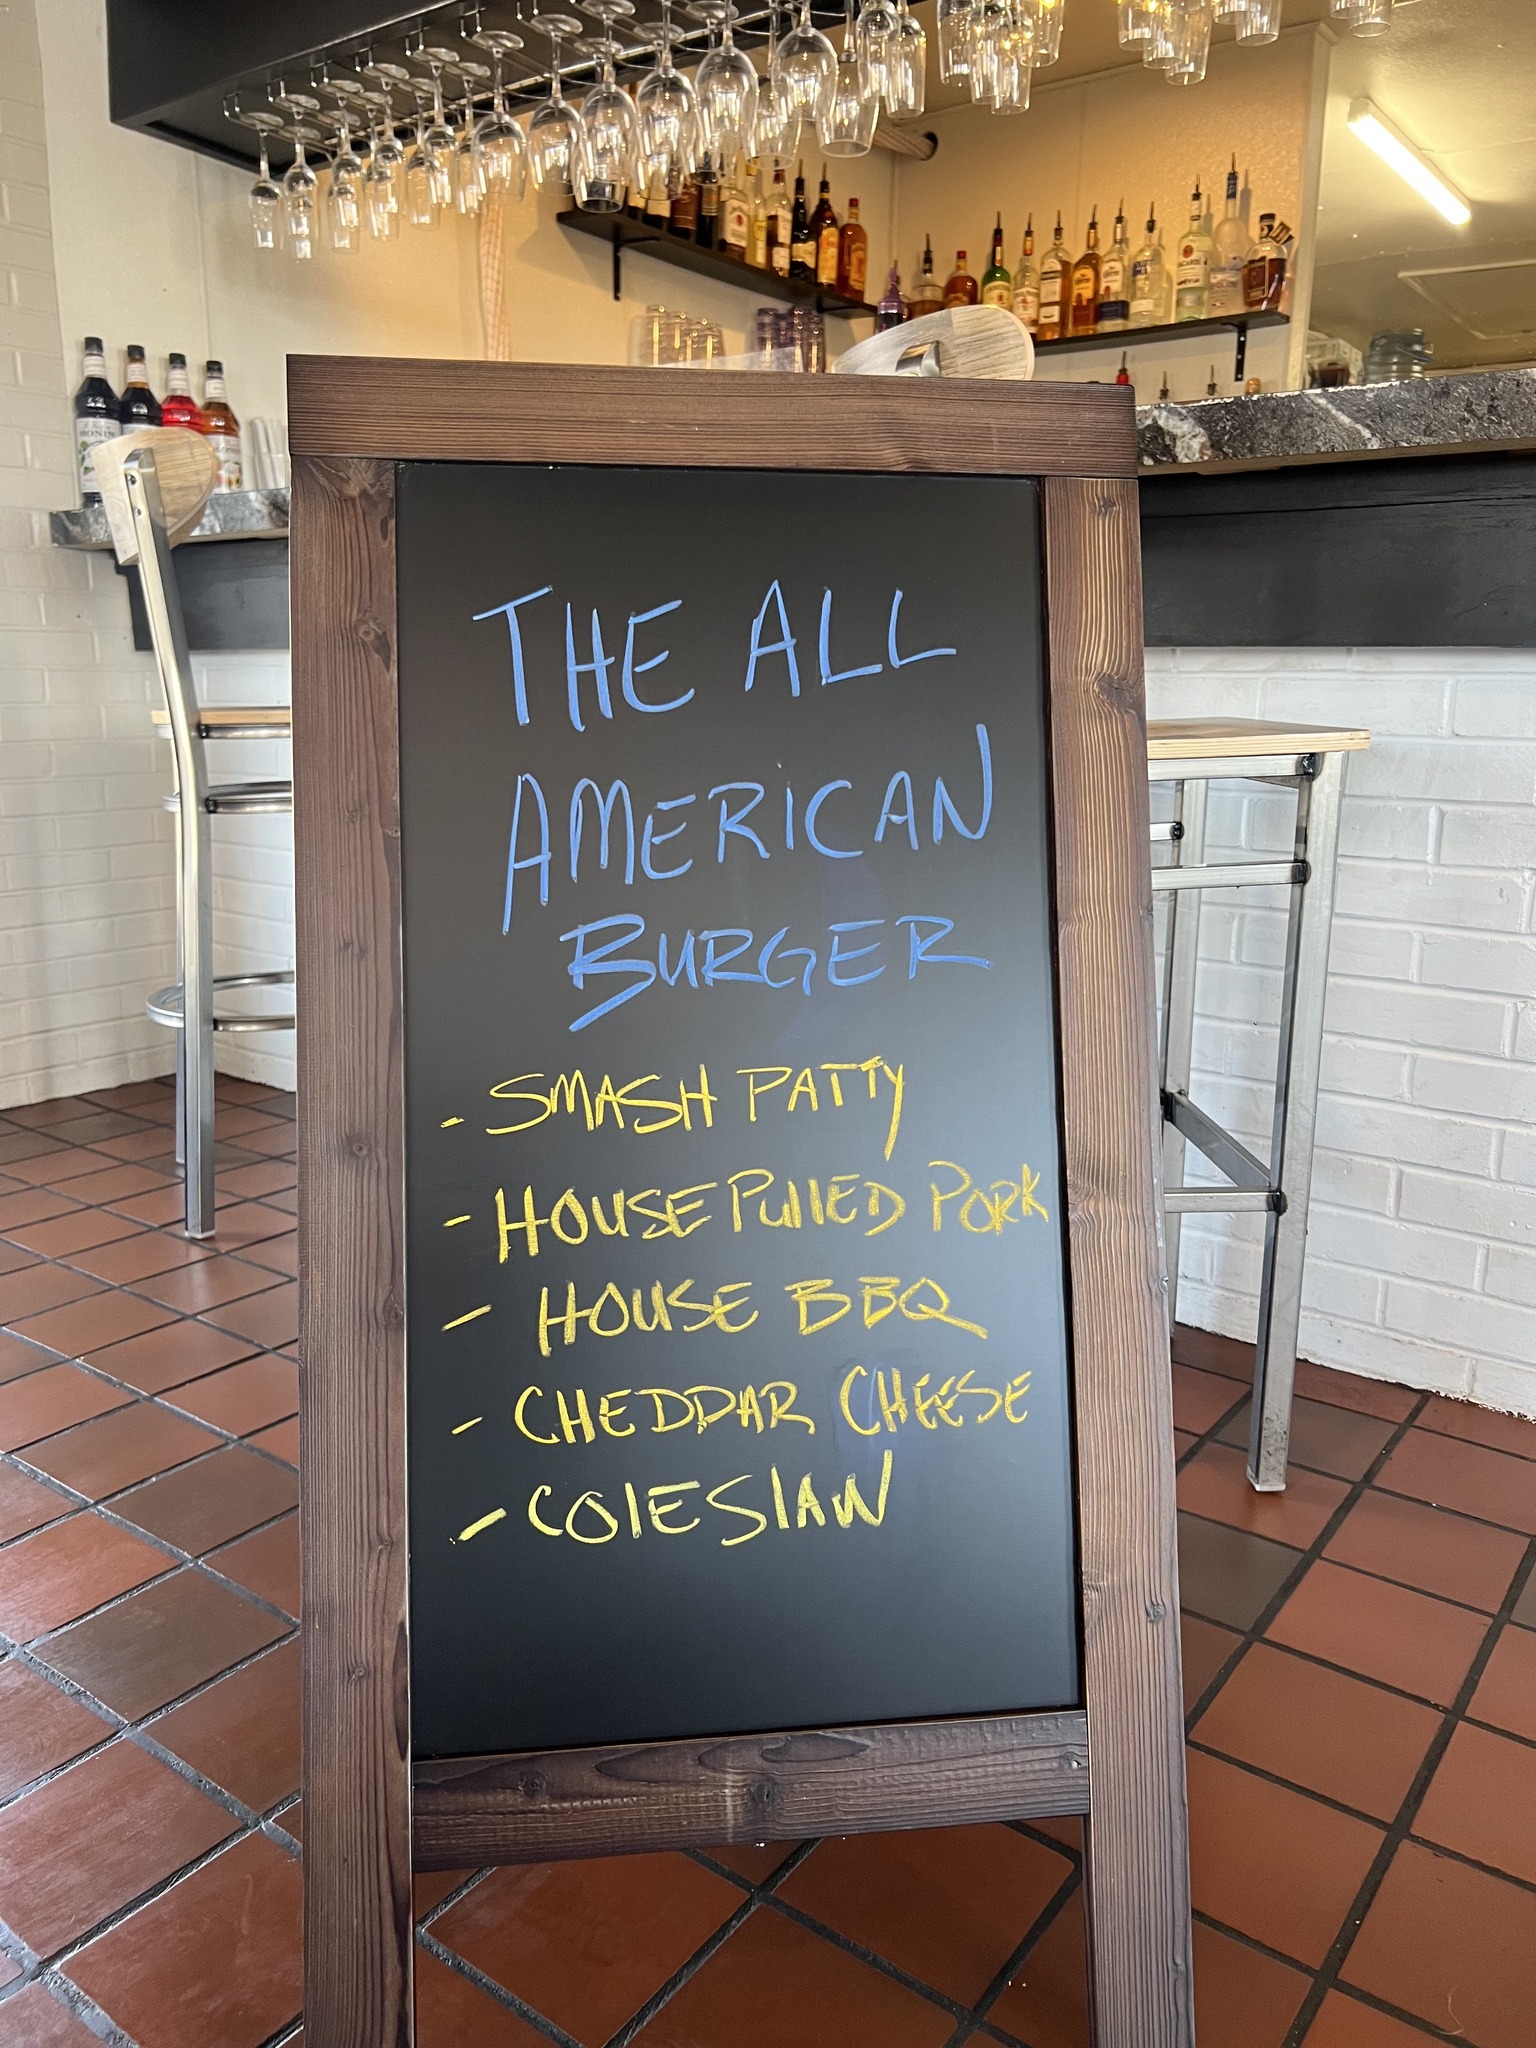 THE ALL
AMERICAN
BURGER
- SMASH PATTY
- HOUSE PUllED PORK
- HOUSE BBQ
- CHEDDAR CHEESE
- COlESlAW
MONIN
BACARDI